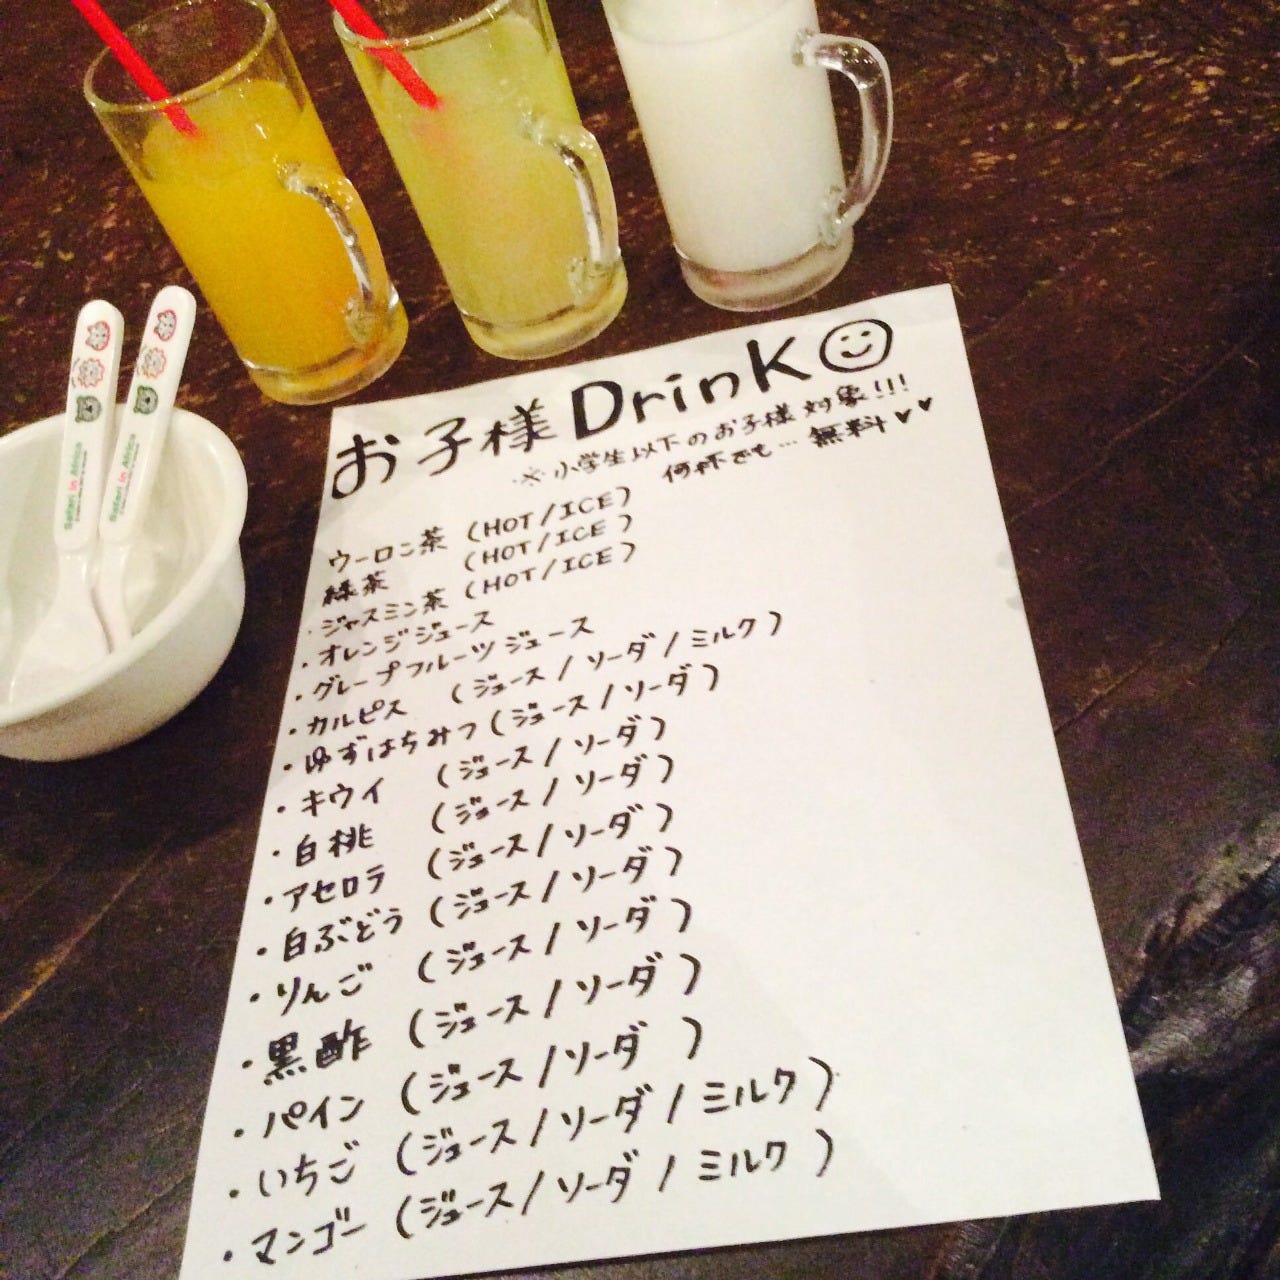 お子様 Drink
※小学生以下のお子様対象!!!
何杯でも…無料♥♥
ウーロン茶 (HOT/ICE)
緑茶 (HOT/ICE)
・ジャスミン茶 (HOT/ICE)
・オレンジジュース
・グレープフルーツジュース
・カルピス (ジュース/ソーダ/ミルク)
・ゆずはちみつ (ジュース/ソーダ)
・キウイ (ジュース/ソーダ)
・白桃 (ジュース/ソーダ)
・アセロラ (ジュース/ソーダ)
・白ぶどう (ジュース/ソーダ)
・りんご (ジュース/ソーダ)
・黒酢 (ジュース/ソーダ)
・パイン (ジュース/ソーダ)
・いちご (ジュース/ソーダ/ミルク)
・マンゴー (ジュース/ソーダ/ミルク)
Safari in Africa
Safari in Africa